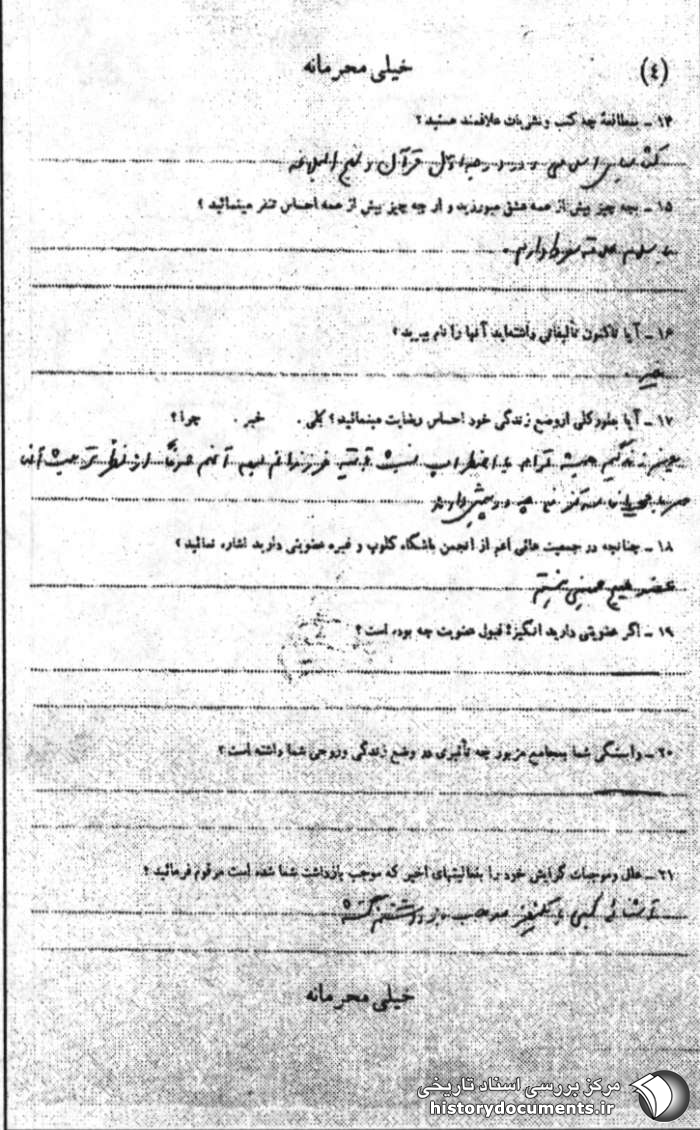 (٤)
خیلی محرمانه
۱۴ ـ بمطالعهٔ چه کتب و نشریات علاقمند هستید ؟
کتابهای اسلامی و در درجه اول قرآن و نهج البلاغه
۱۵ ـ بچه چیز بیش از همه عشق میورزید و از چه چیز بیش از همه احساس تنفر مینمائید ؟
علاقه دارم .
۱۶ ـ آیا تاکنون تألیفاتی داشته‌اید آنها را نام ببرید ؟
خیر .
۱۷ ـ آیا بطور کلی از وضع زندگی خود احساس رضایت مینمائید ؟ بلی . خیر . چرا ؟
همیشه توأم با اضطراب فرزندانم از نظر تربیت آنان
۱۸ ـ چنانچه در جمعیت هائی اعم از انجمن باشگاه کلوپ و غیره عضویتی دارید اشاره نمائید ؟
عضو هیچ جمعیتی نیستم
۱۹ ـ اگر عضویتی دارید انگیزهٔ قبول عضویت چه بوده است ؟
۲۰ ـ وابستگی شما بمجامع مزبور چه تأثیری در وضع زندگی و روحی شما داشته است ؟
۲۱ ـ علل و موجبات گرایش خود را بفعالیتهای اخیر که موجب بازداشت شما شده است مرقوم فرمائید ؟
آشنائی با یکنفر موجب بازداشتم گشته
خیلی محرمانه
مرکز بررسی اسناد تاریخی
historydocuments.ir